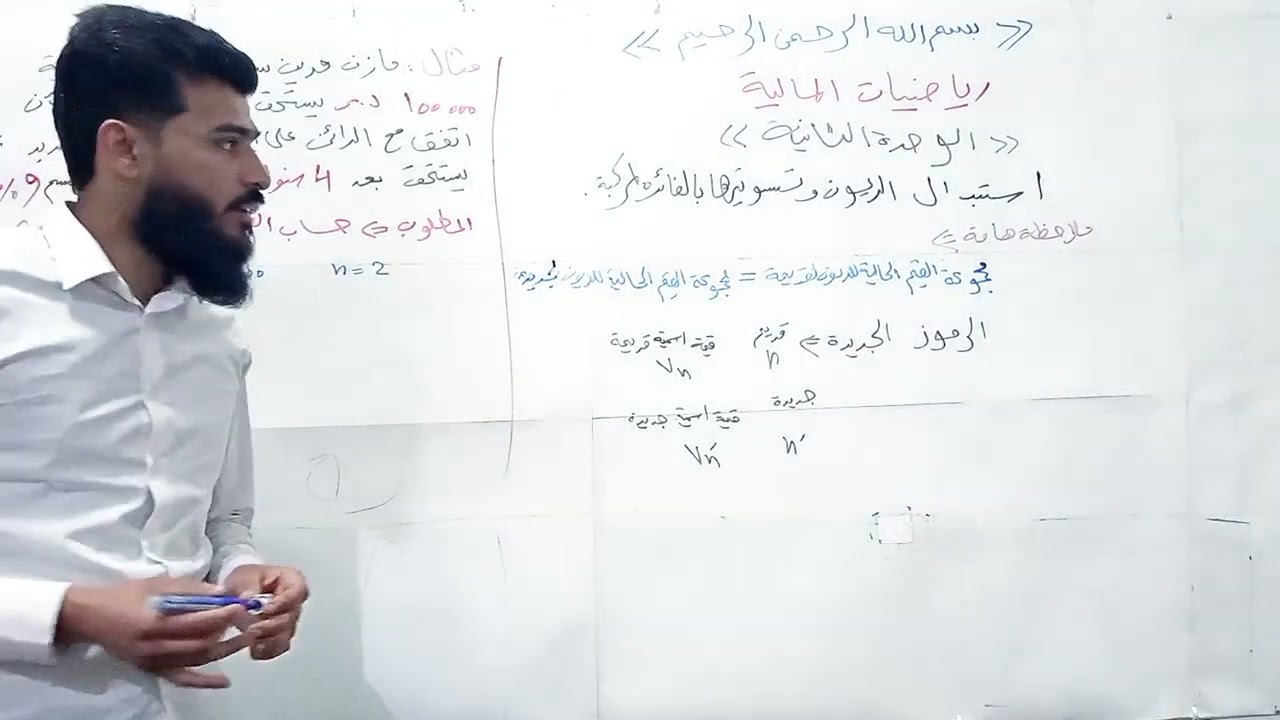 « بسم الله الرحمن الرحيم »
رياضيات المالية
« الوحدة الثانية »
استبدال الديون وتسويتها بالفائدة المركبة.
ملاحظة هامة ⇐
مجموعة القيم الحالية للديون القديمة = مجموعة القيم الحالية للديون الجديدة
الرموز الجديدة ⇐ قديم قيمة اسمية قديمة
n Vn
جديدة قيمة اسمية جديدة
n' Vn'
مثال: مازن مدين
100000 يستحق
اتفق مع الدائن على
يستحق بعد 4 9%
المطلوب ⇐ حساب
n = 2